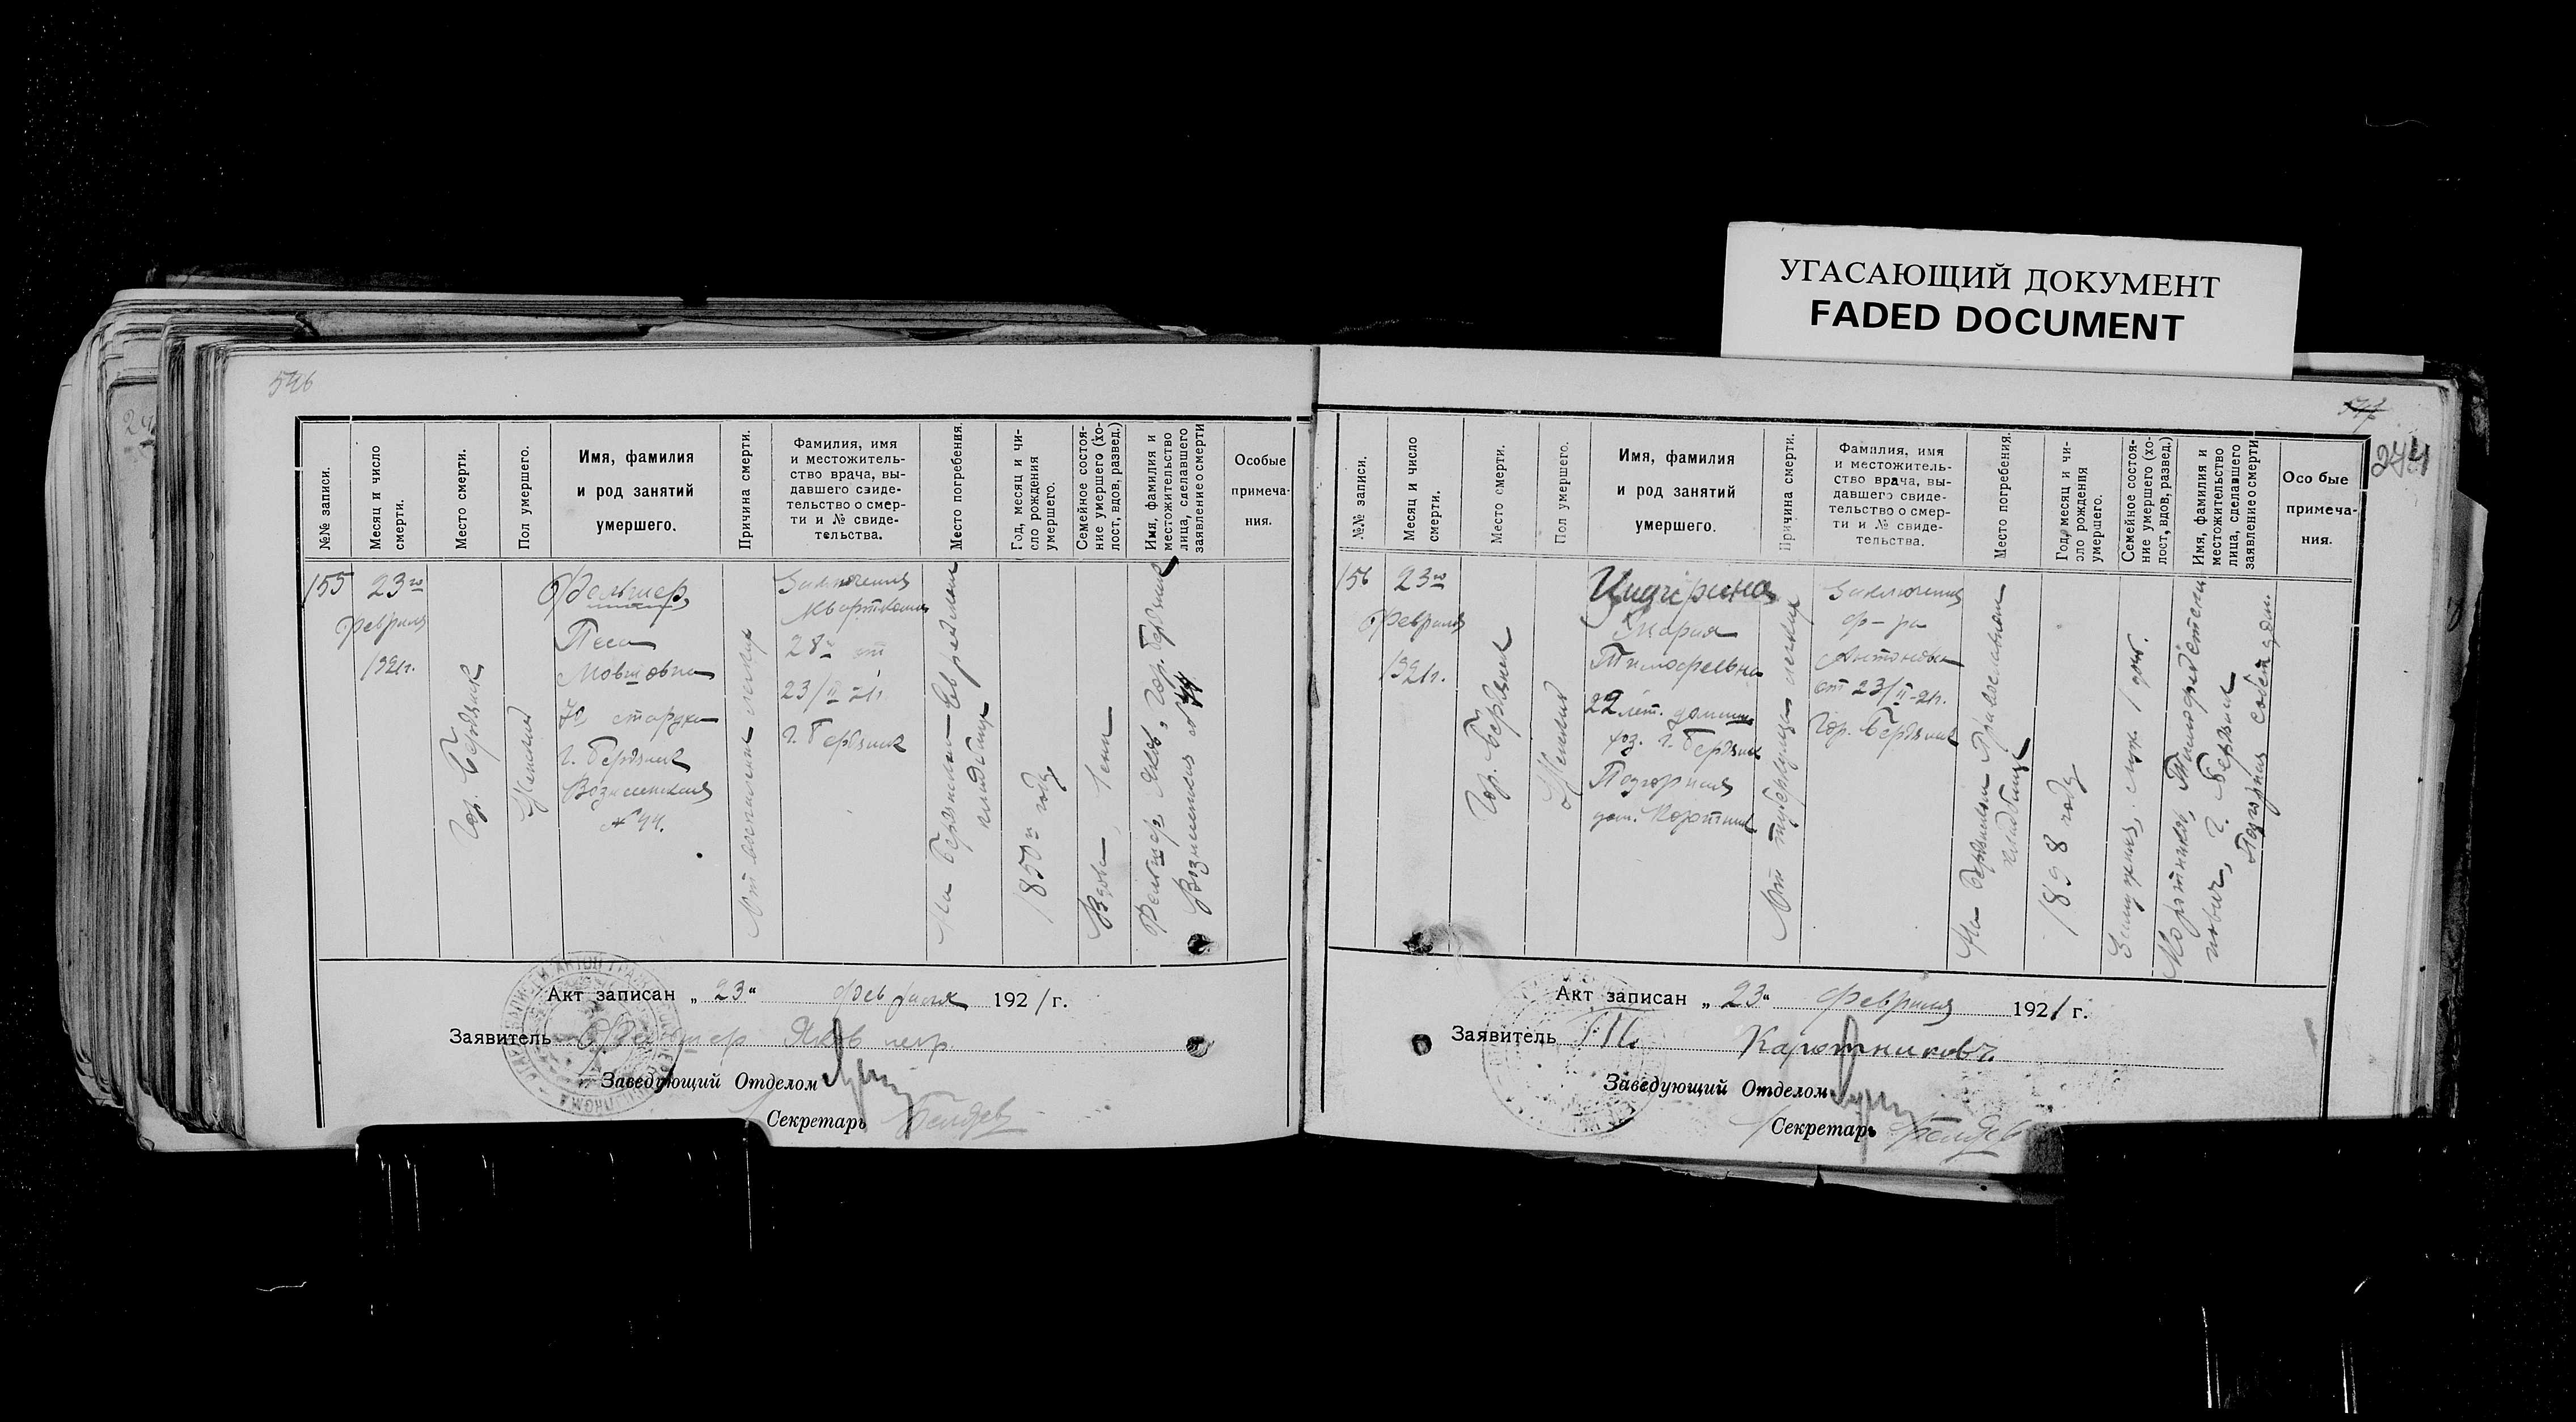 УГАСАЮЩИЙ ДОКУМЕНТ
FADED DOCUMENT
546
№№ записи.
Месяц и число
смерти.
Место смерти.
Пол умершего.
Имя, фамилия
и род занятий
умершего.
Причина смерти.
Фамилия, имя
и местожитель-
ство врача, вы-
давшего свиде-
тельство о смер-
ти и № свиде-
тельства.
Место погребения.
Год, месяц и чи-
сло рождения
умершего.
Семейное состоя-
ние умершего (хо-
лост, вдов, развед.)
Имя, фамилия и
местожительство
лица, сделавшего
заявление о смерти
Особые
примеча-
ния.
155
23го
февраля
1921г.
Гор. Бердянск
Женский
Фельшер
Песа
Мовшовна
70 старуха
г. Бердянск
Вознесенская
№ 44.
От воспаления легких
Заключения
Квартхоза
28 от
23/II-21г
г. Бердянск
На Бердянском Еврейском
кладбище
1850 году
Вдова
Фельшер Яков, гор. Бердянск
Вознесенская № 44
Акт записан „ 23 “ февраля 1921 г.
Заявитель Фельшер Яков
Заведующий Отделом
Секретарь
547
244
№№ записи.
Месяц и число
смерти.
Место смерти.
Пол умершего.
Имя, фамилия
и род занятий
умершего.
Причина смерти.
Фамилия, имя
и местожитель-
ство врача, вы-
давшего свиде-
тельство о смер-
ти и № свиде-
тельства.
Место погребения.
Год, месяц и чи-
сло рождения
умершего.
Семейное состоя-
ние умершего (хо-
лост, вдов, развед.)
Имя, фамилия и
местожительство
лица, сделавшего
заявление о смерти
Осо бые
примеча-
ния.
156
23го
февраля
1921г.
Гор. Бердянск
Женский
Мария
Тимофеевна
22 лет. домашн
хоз. г. Бердянск
Подгорная
дом.
От туберкулеза легких
Заключения
д-ра
Антонова
от 23/II-21г.
Гор. Бердянск
На Бердянском Православном
кладбище
1898 году
Замужняя,
г. Бердянск
Подгорная собств. дом.
Акт записан „ 23 “ февраля 1921 г.
Заявитель Каротников
Заведующий Отделом
Секретарь